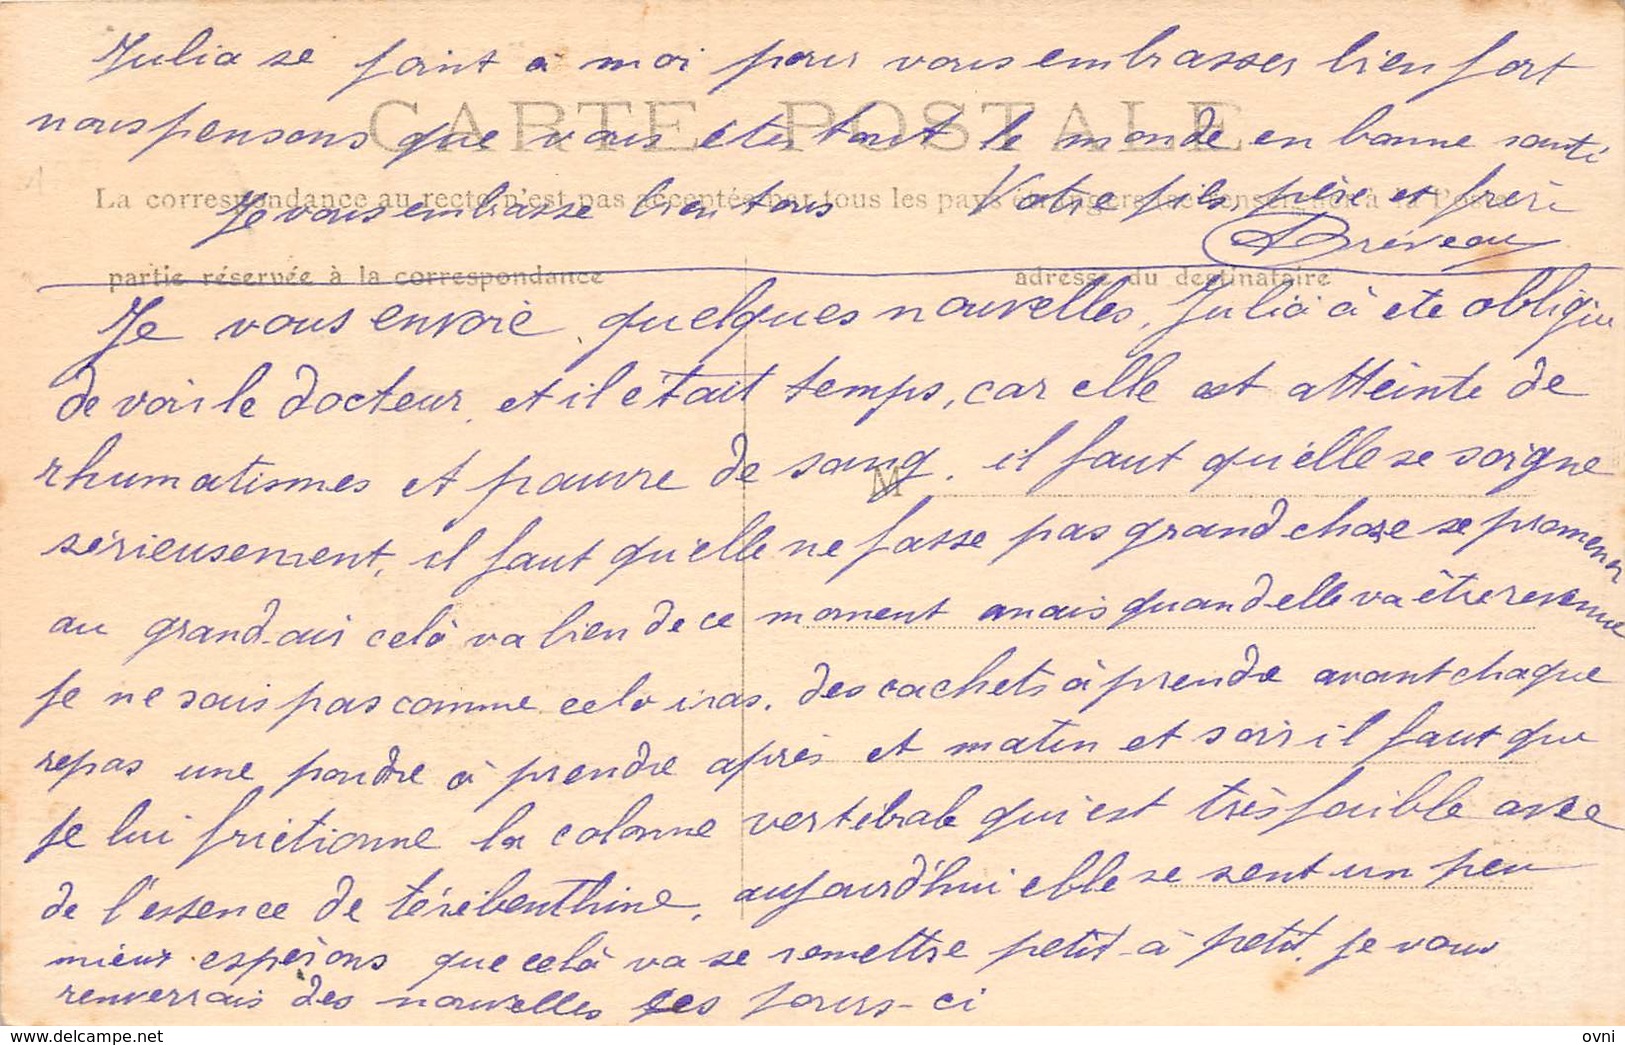 Julia se joint à moi pour vous embrasser bien fort
CARTE POSTALE
nous pensons que vous êtes tout le monde en bonne santé
La correspondance au recto n'est pas acceptée par tous les pays étrangers (se renseigner à la Poste)
Je vous embrasse bien tous Votre fils père et frère
Dréveau
partie réservée à la correspondance adresse du destinataire
Je vous envoie quelques nouvelles, Julia à ete obligée
de voir le docteur, et il était temps, car elle est atteinte de
rhumatismes et pauvre de sang. il faut qu'elle se soigne
M
sérieusement, il faut qu'elle ne fasse pas grand-chose se promener
au grand-air celà va bien de ce moment mais quand-elle va être revenue
je ne sais pas comme cela iras. des cachets à prendre avant chaque
repas une poudre à prendre après et matin et soir il faut que
je lui frictionne la colonne vertébrale qui est très faible avec
de l'essence de térébenthine, aujourd'hui elle se sent un peu
mieux espérons que celà va se remettre petit-à petit. je vous
renverrais des nouvelles ces jours-ci
www.delcampe.net ovni